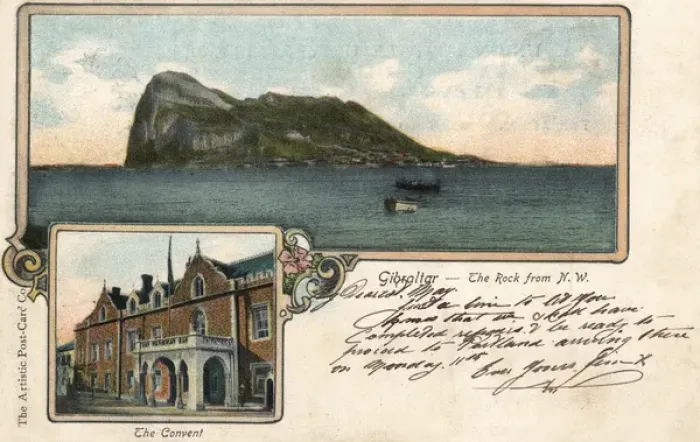 Gibraltar — The Rock from N. W.
Dearest May.
Just a line to let you
know that we shall have
completed repairs & be ready to
proceed to Portland arriving there
on Monday 11th
Ever Yours
The Artistic Post-Card Co
The Convent